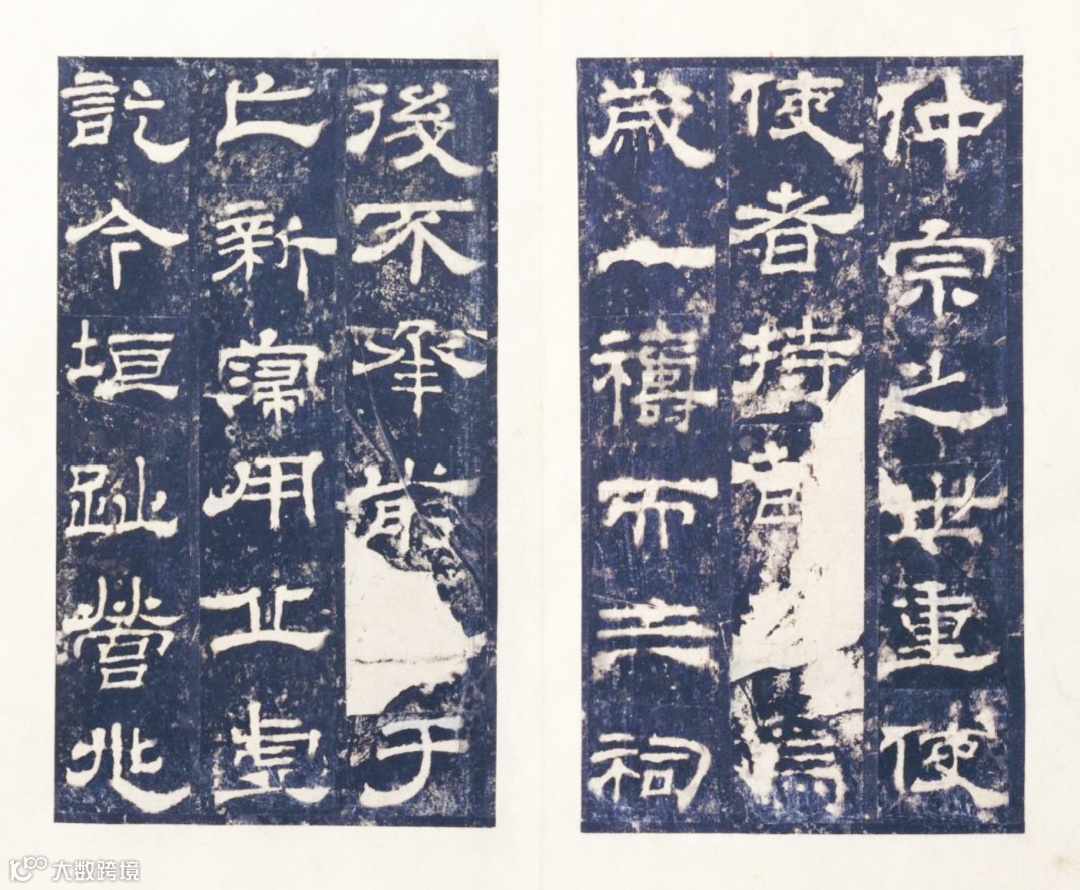 仲宗之世重使
使者持焉
歲一禱而三祠
後不承前于
亡新寖用丘虛
訖今垣趾營兆
大数跨境